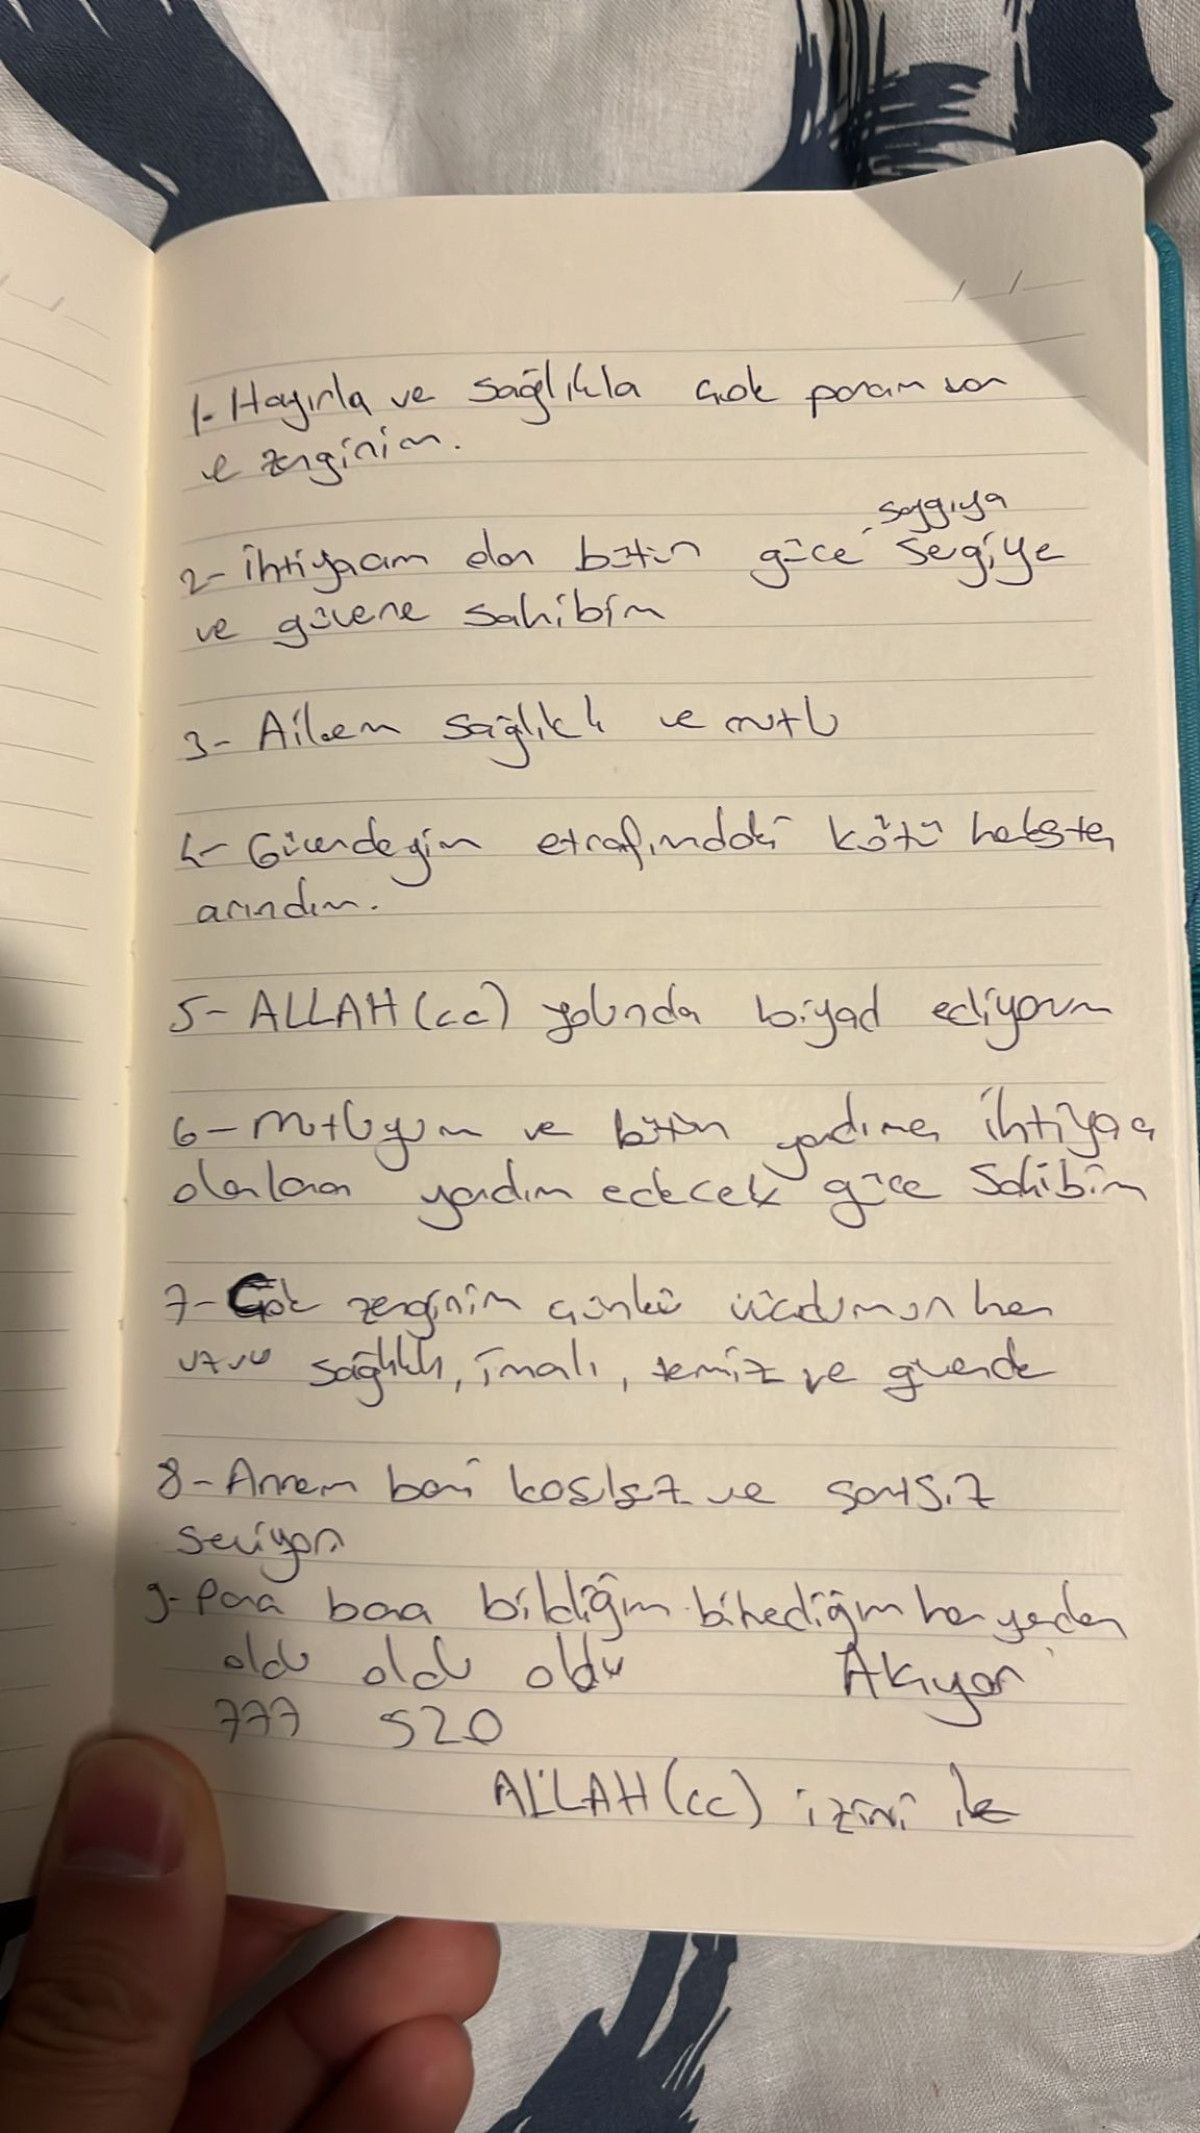 1- Hayırla ve sağlıkla çok param var
ve zenginim.
saygıya
2- ihtiyacım olan bütün güce sevgiye
ve güvene sahibim
3- Ailem sağlıklı ve mutlu
4- Güvendeyim etrafımdaki kötü herkesten
arındım.
5- ALLAH (cc) yolunda biyad ediyorum
6- mutluyum ve bütün yardıma ihtiyacı
olanlara yardım edecek güce sahibim
7- Çok zenginim çünkü vücudumun her
uzvu sağlıklı, imanlı, temiz ve güvende
8- Annem beni koşulsuz ve şartsız
seviyor
9- Para bana bildiğim bilmediğim her yerden
oldu oldu oldu Akıyor
777 520
ALLAH (cc) izini ile